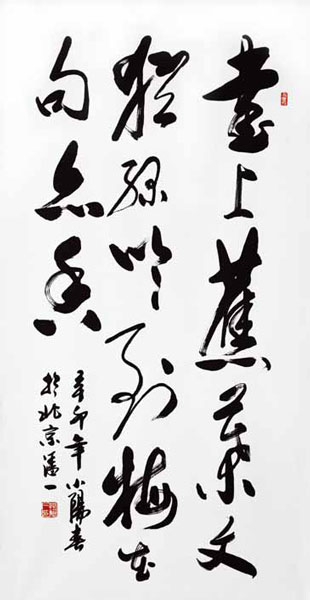 書上蕉葉文
猶綠吟到梅花
句亦香
辛卯年小陽春
於北京潘一